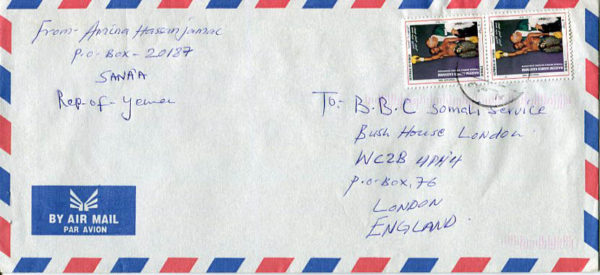 From- Amina Hassanjamac
P.o-Box-20187
SANA'A
Rep-of-Yemen
To:- B.B.C Somali Service
Bush House London
WC2B 4PH4
P.o-Box, 76
LONDON
ENGLAND.
BY AIR MAIL
PAR AVION